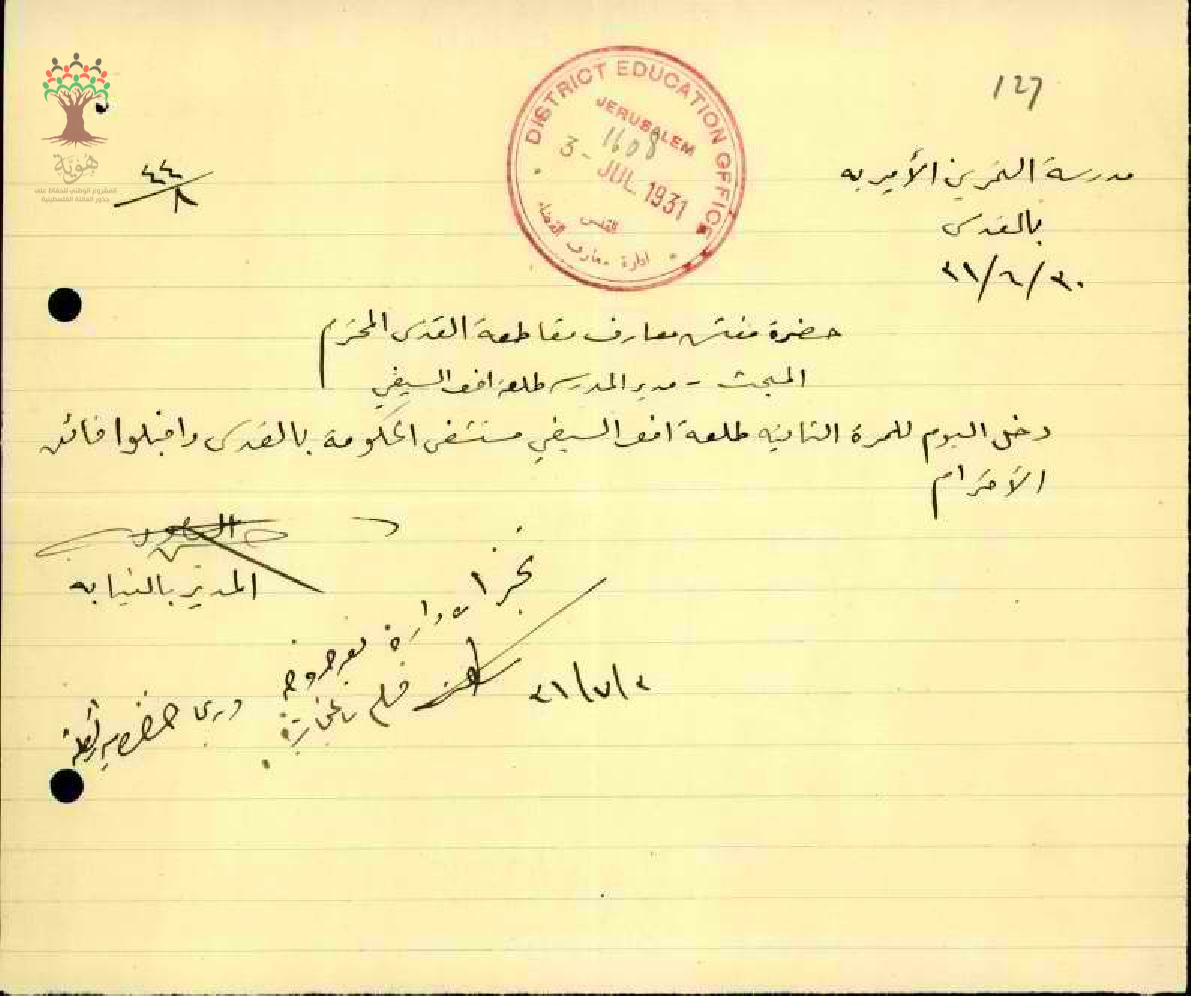 127
هوية
المشروع الوطني للحفاظ على
جذور العائلة الفلسطينية
٤٤/٨
DISTRICT EDUCATION OFFICE
JERUSALEM
1608
3 - JUL 1931
القدس
ادارة معارف القضاء
مدرسة التمرين الأميريه
بالقدس
٣١/٦/٣٠
حضرة مفتش معارف مقاطعة القدس المحترم
المبحث - مدير المدرسه طلعة افـ السيفي
دخل اليوم للمرة الثانيه طلعة افـ السيفي مستشفى الحكومة بالقدس واقبلوا فائق
الاحترام
المدير بالنيابه
تخبر الادارة
٣١/٧/٢